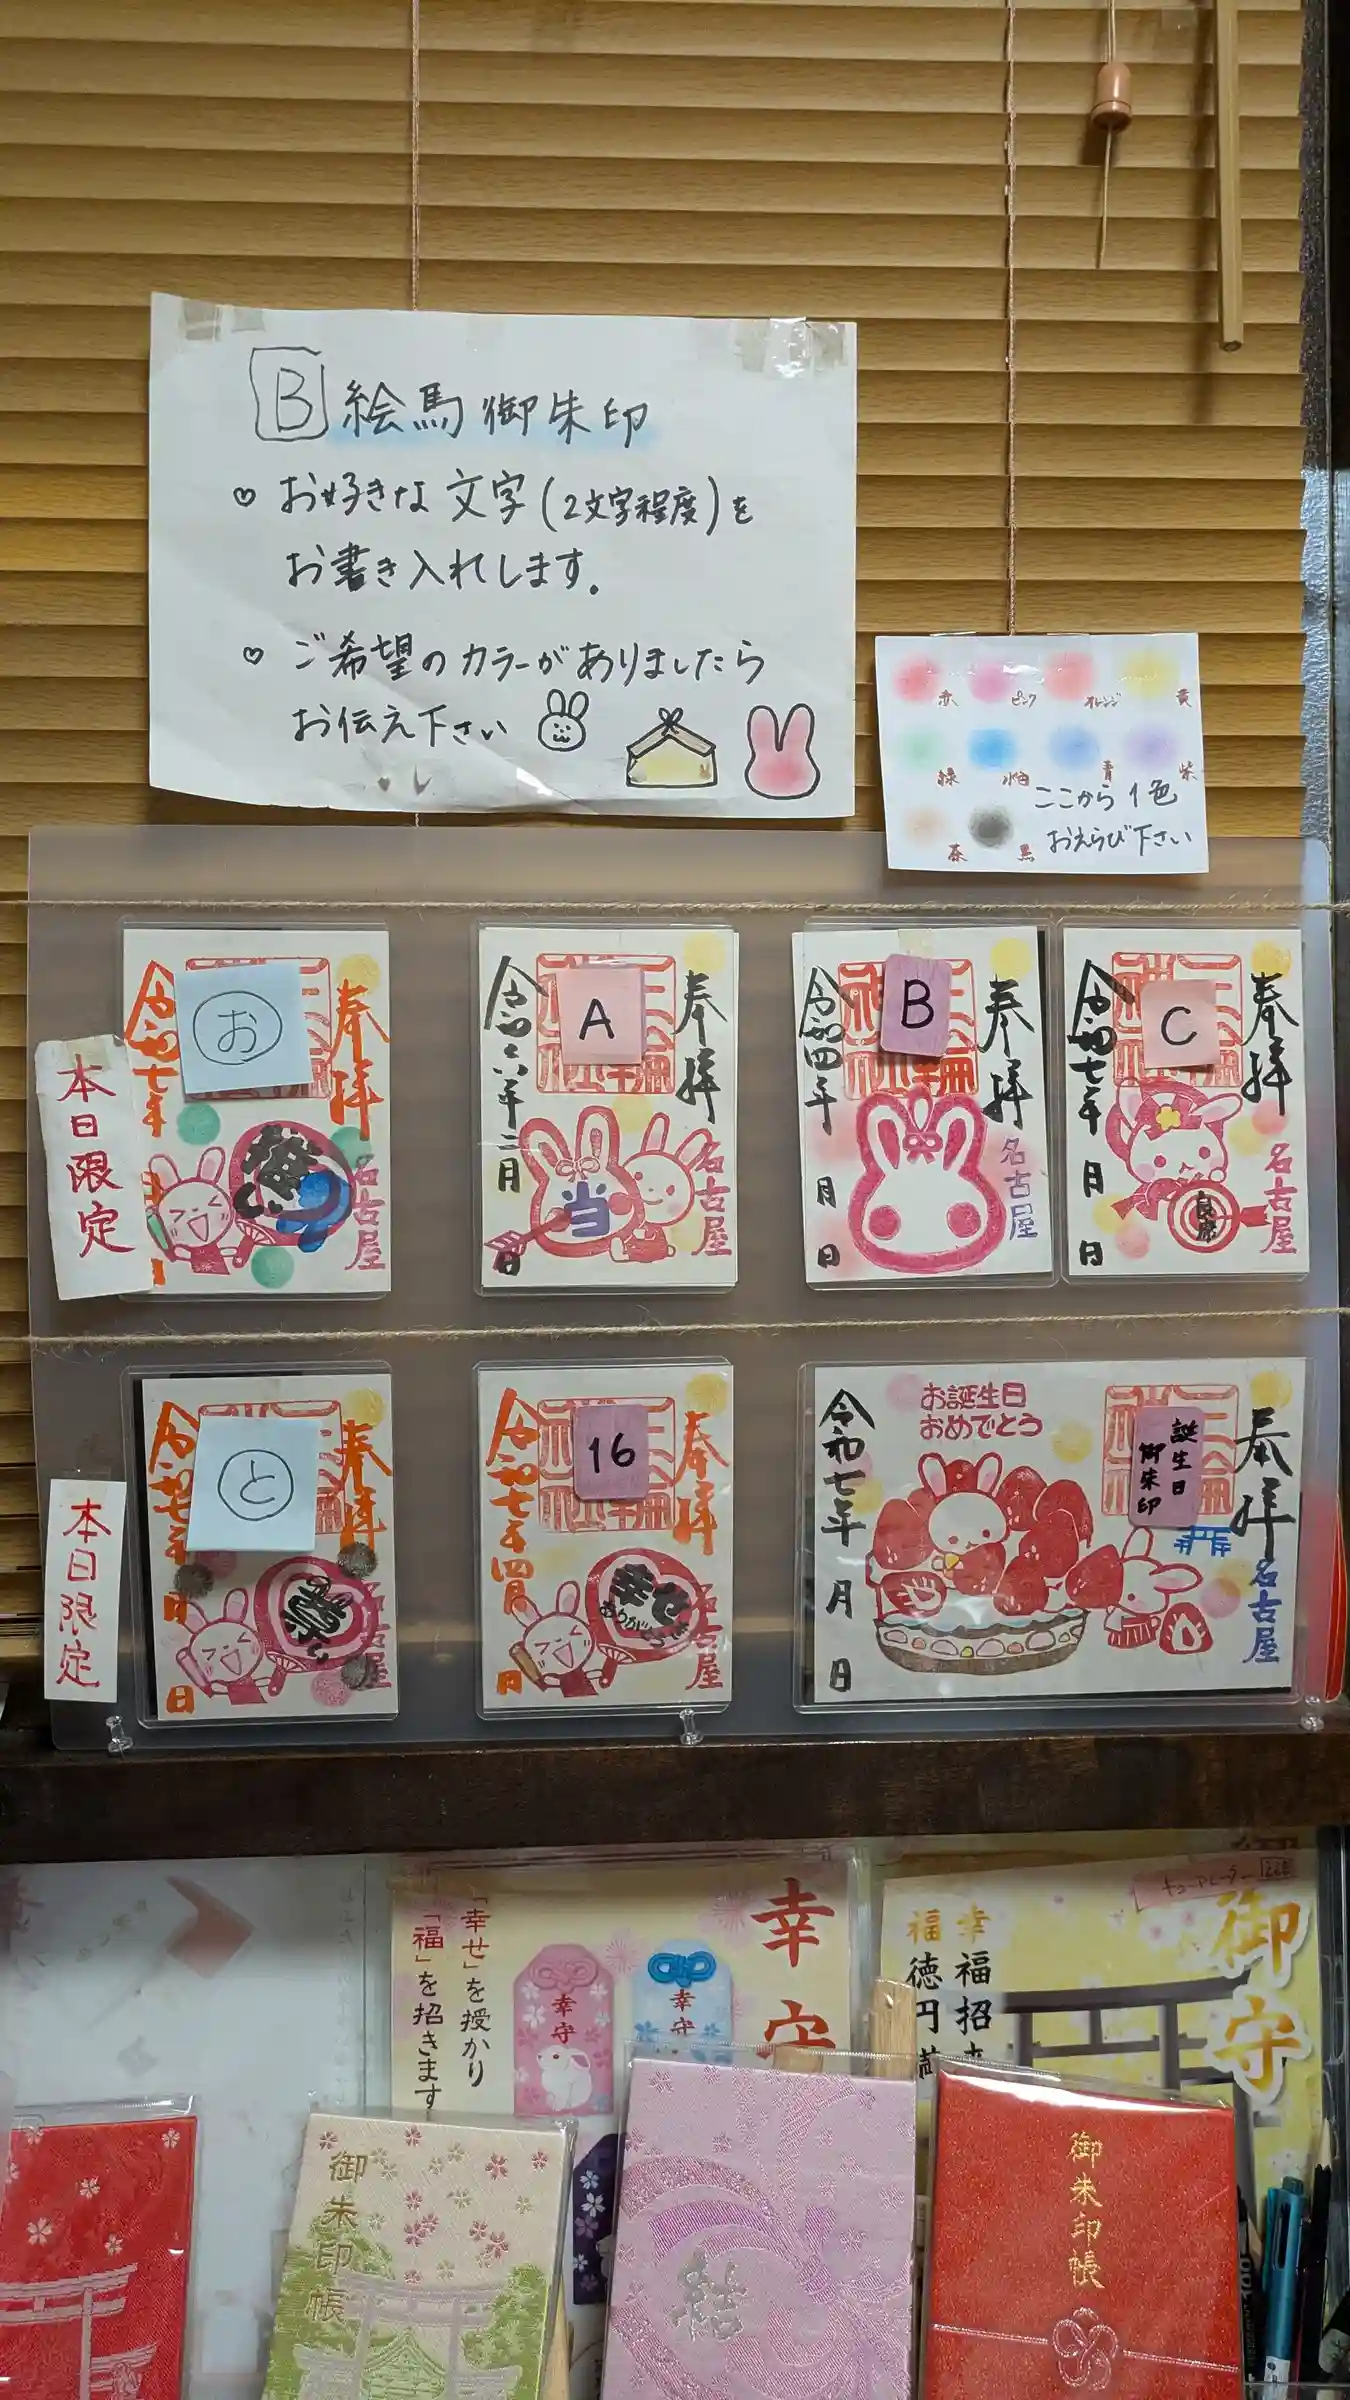 B 絵馬御朱印
♡ お好きな文字(2文字程度)を
お書き入れします.
♡ ご希望のカラーがありましたら
お伝え下さい
赤 ピンク オレンジ 黄
緑 水色 青 紫
茶 黒
ここから1色
おえらび下さい
本日限定
お
奉拝
令和七年
名古屋
A
奉拝
令和六年二月
日
当
名古屋
B
奉拝
令和四年
月
日
名古屋
C
奉拝
令和七年
月
日
名古屋
本日限定
と
奉拝
令和七年
月
日
16
奉拝
令和七年四月
日
幸せ
ありがとう
名古屋
お誕生日
おめでとう
誕生日
御朱印
奉拝
令和七年
月
日
名古屋
幸守
「幸せ」を授かり
「福」を招きます
幸守
幸守
御守
幸福招来
福徳円満
御朱印帳
結
御朱印帳